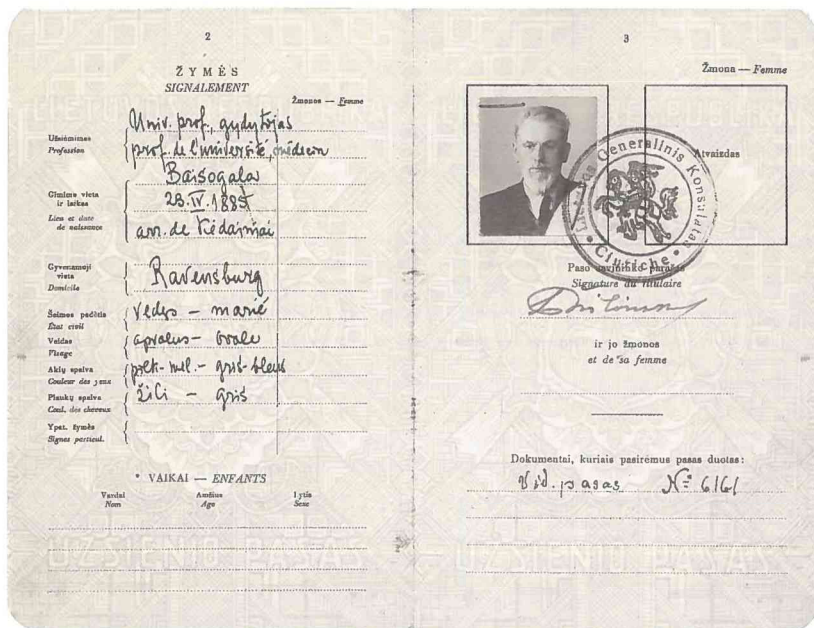 2
ŽYMĖS
SIGNALEMENT
Žmonos — Femme
Užsiėmimas
Profession
Univ. prof., gydytojas
prof. de l'université, médecin
Gimimo vieta
ir laikas
Lieu et date
de naissance
Baisogala
23.IV.1885
arr. de Kėdainiai
Gyvenamoji
vieta
Domicile
Ravensburg
Šeimos padėtis
État civil
vedęs — marié
Veidas
Visage
apvalus — ovale
Akių spalva
Couleur des yeux
gris-bleus
Plaukų spalva
Coul. des cheveux
žili — gris
Ypat. žymės
Signes particul.
* VAIKAI — ENFANTS
Vardai
Nom
Amžius
Age
Lytis
Sexe
UŽSIENIO PASAS
3
Žmona — Femme
Atvaizdas
Lietuvos Generalinis Konsulatas
• Ciuriche •
Paso savininko parašas
Signature du titulaire
ir jo žmonos
et de sa femme
Dokumentai, kuriais pasirėmus pasas duotas:
Vid. pasas № 6161
UŽSIENIO PASAS